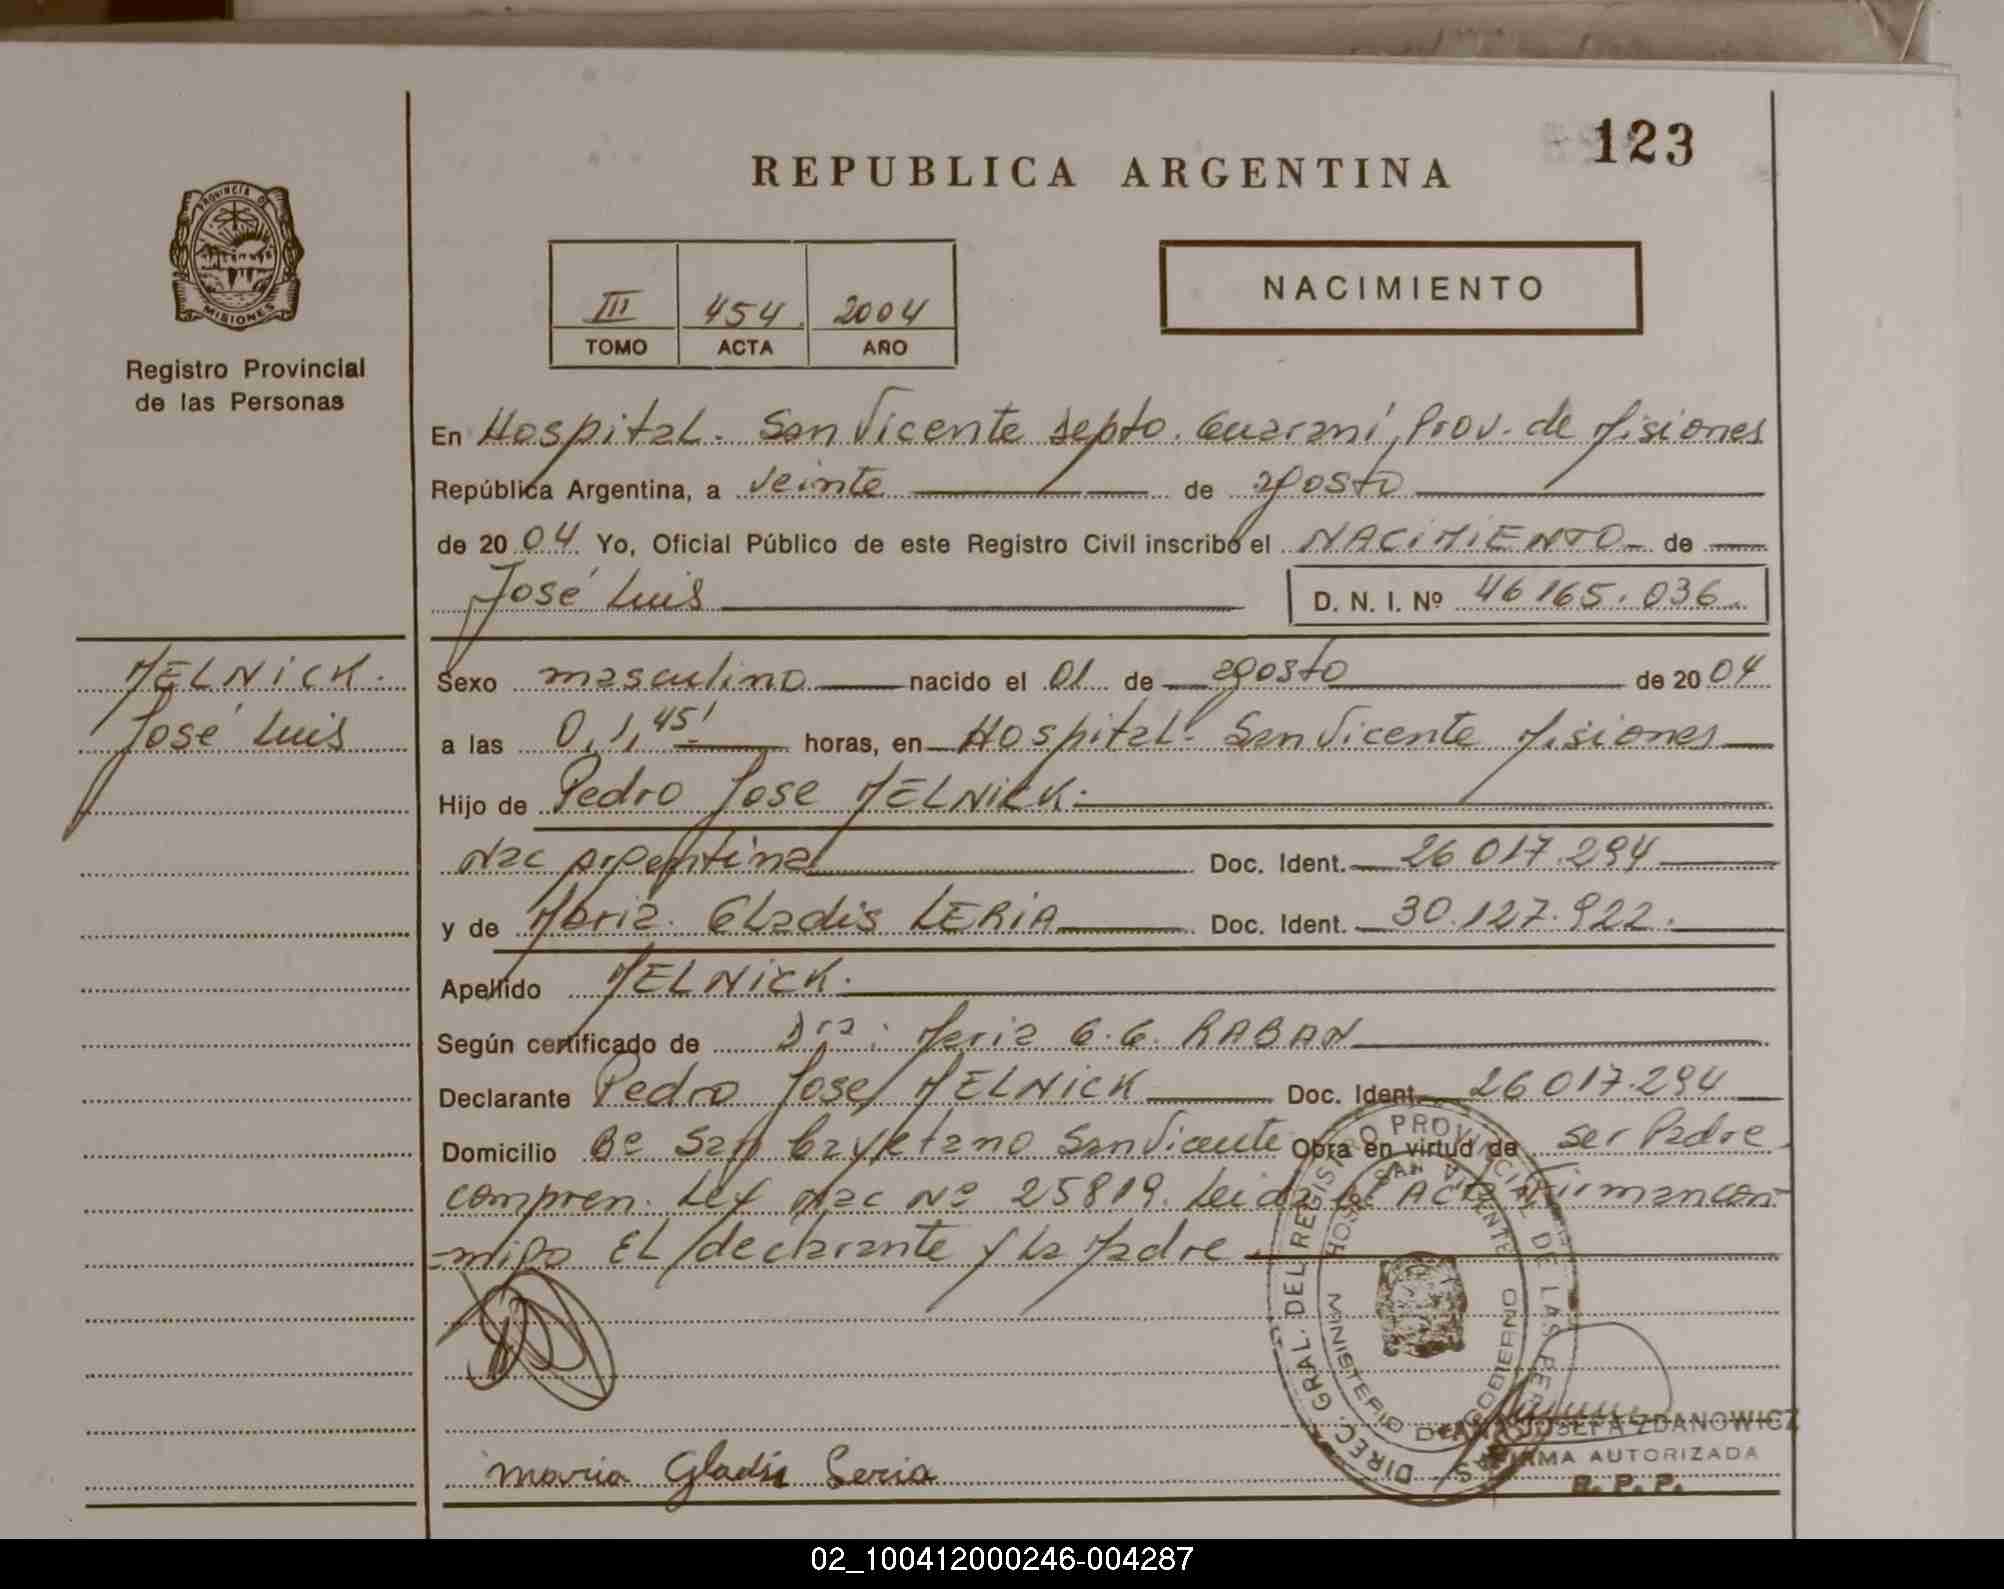 123
REPUBLICA ARGENTINA
PROVINCIA DE
MISIONES
Registro Provincial
de las Personas
III 454 2004
TOMO ACTA AÑO
NACIMIENTO
En Hospital. San Vicente Depto. Guaraní, Prov. de Misiones
República Argentina, a Veinte de agosto
de 2004 Yo, Oficial Público de este Registro Civil inscribo el NACIMIENTO de
José Luis D. N. I. Nº 46165.036
MELNICK.
José Luis
Sexo masculino nacido el 01 de agosto de 2004
a las 0,1,45' horas, en Hospital. San Vicente Misiones
Hijo de Pedro Jose MELNICK.
Nac Argentina Doc. Ident. 26 017.294
y de Maria. Gladis LERIA Doc. Ident. 30.127.922.
Apellido MELNICK.
Según certificado de Dra: Maria G. G. RABAN
Declarante Pedro Jose MELNICK Doc. Ident. 26 017.294
Domicilio Bº San Cayetano San Vicente Obra en virtud de ser Padre
compren. Ley Nac Nº 25819. Leida el Acta Firman con-
-migo El declarante y La Madre.
DIREC. GRAL. DEL REGISTRO PROVINCIAL DE LAS PERSONAS
HOSP. SAN VICENTE
MINISTERIO DE GOBIERNO
ANA JOSEFA ZDANOWICZ
FIRMA AUTORIZADA
R. P. P.
maria Gladis Leria
02_100412000246-004287